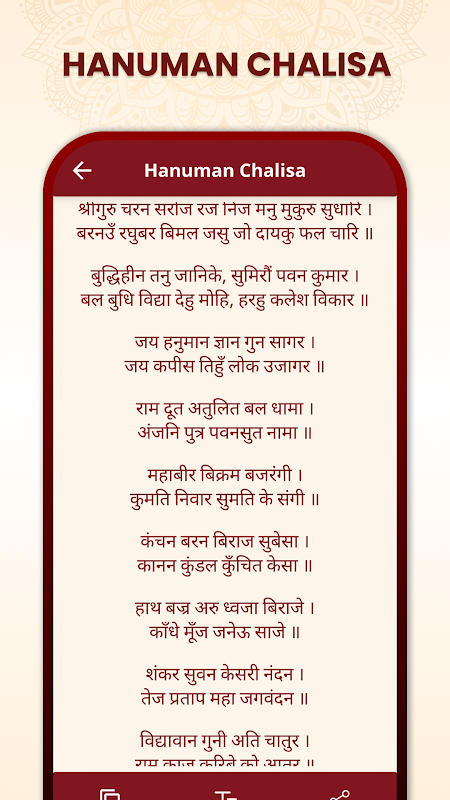 HANUMAN CHALISA
Hanuman Chalisa
श्रीगुरु चरन सरोज रज निज मनु मुकुरु सुधारि ।
बरनउँ रघुबर बिमल जसु जो दायकु फल चारि ॥
बुद्धिहीन तनु जानिके, सुमिरौं पवन कुमार ।
बल बुधि विद्या देहु मोहि, हरहु कलेश विकार ॥
जय हनुमान ज्ञान गुन सागर ।
जय कपीस तिहुँ लोक उजागर ॥
राम दूत अतुलित बल धामा ।
अंजनि पुत्र पवनसुत नामा ॥
महाबीर बिक्रम बजरंगी ।
कुमति निवार सुमति के संगी ॥
कंचन बरन बिराज सुबेसा ।
कानन कुंडल कुँचित केसा ॥
हाथ बज्र अरु ध्वजा बिराजे ।
काँधे मूँज जनेऊ साजे ॥
शंकर सुवन केसरी नंदन ।
तेज प्रताप महा जगवंदन ॥
विद्यावान गुनी अति चातुर ।
राम काज करिबे को आतुर ॥